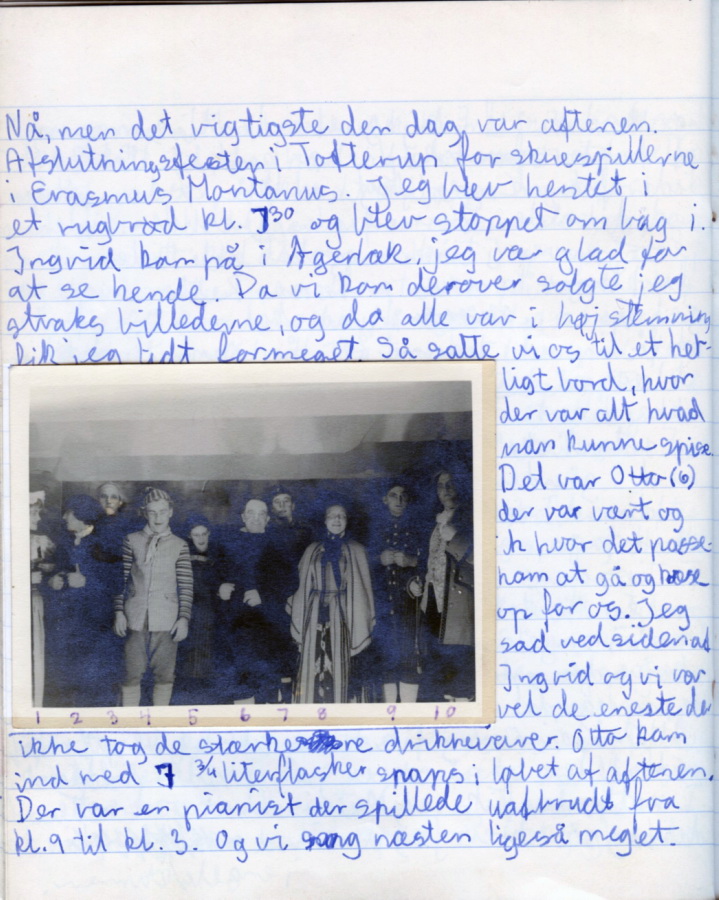 Nå, men det vigtigste den dag var aftenen.
Afslutningsfesten i Tofterup for skuespillerne
i Erasmus Montanus. Jeg blev hentet i
et rugbrød kl. 7³⁰ og blev stoppet om bag i.
Ingrid kom på i Agerbæk, jeg var glad for
at se hende. Da vi kom derover solgte jeg
straks billederne, og da alle var i høj stemning
fik jeg lidt formeget. Så satte vi os til et her-
ligt bord, hvor
der var alt hvad
man kunne spise.
Det var Otto (6)
der var vært og
hvor det passe
ham at gå og
op for os. Jeg
sad ved siden af
Ingrid og vi var
vel de eneste der
1 2 3 4 5 6 7 8 9 10
ikke tog de stærkere drikkevarer. Otto kom
ind med 7 3/4 literflasker snaps i løbet af aftenen.
Der var en pianist der spillede uafbrudt fra
kl. 9 til kl. 3. Og vi sang næsten ligeså meget.